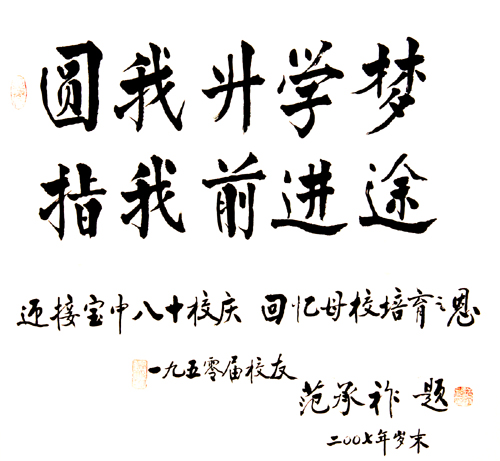 圆我升学梦
指我前进途
迎接宝中八十校庆 回忆母校培育之恩
一九五零届校友
范承祚 题
二〇〇七年岁末